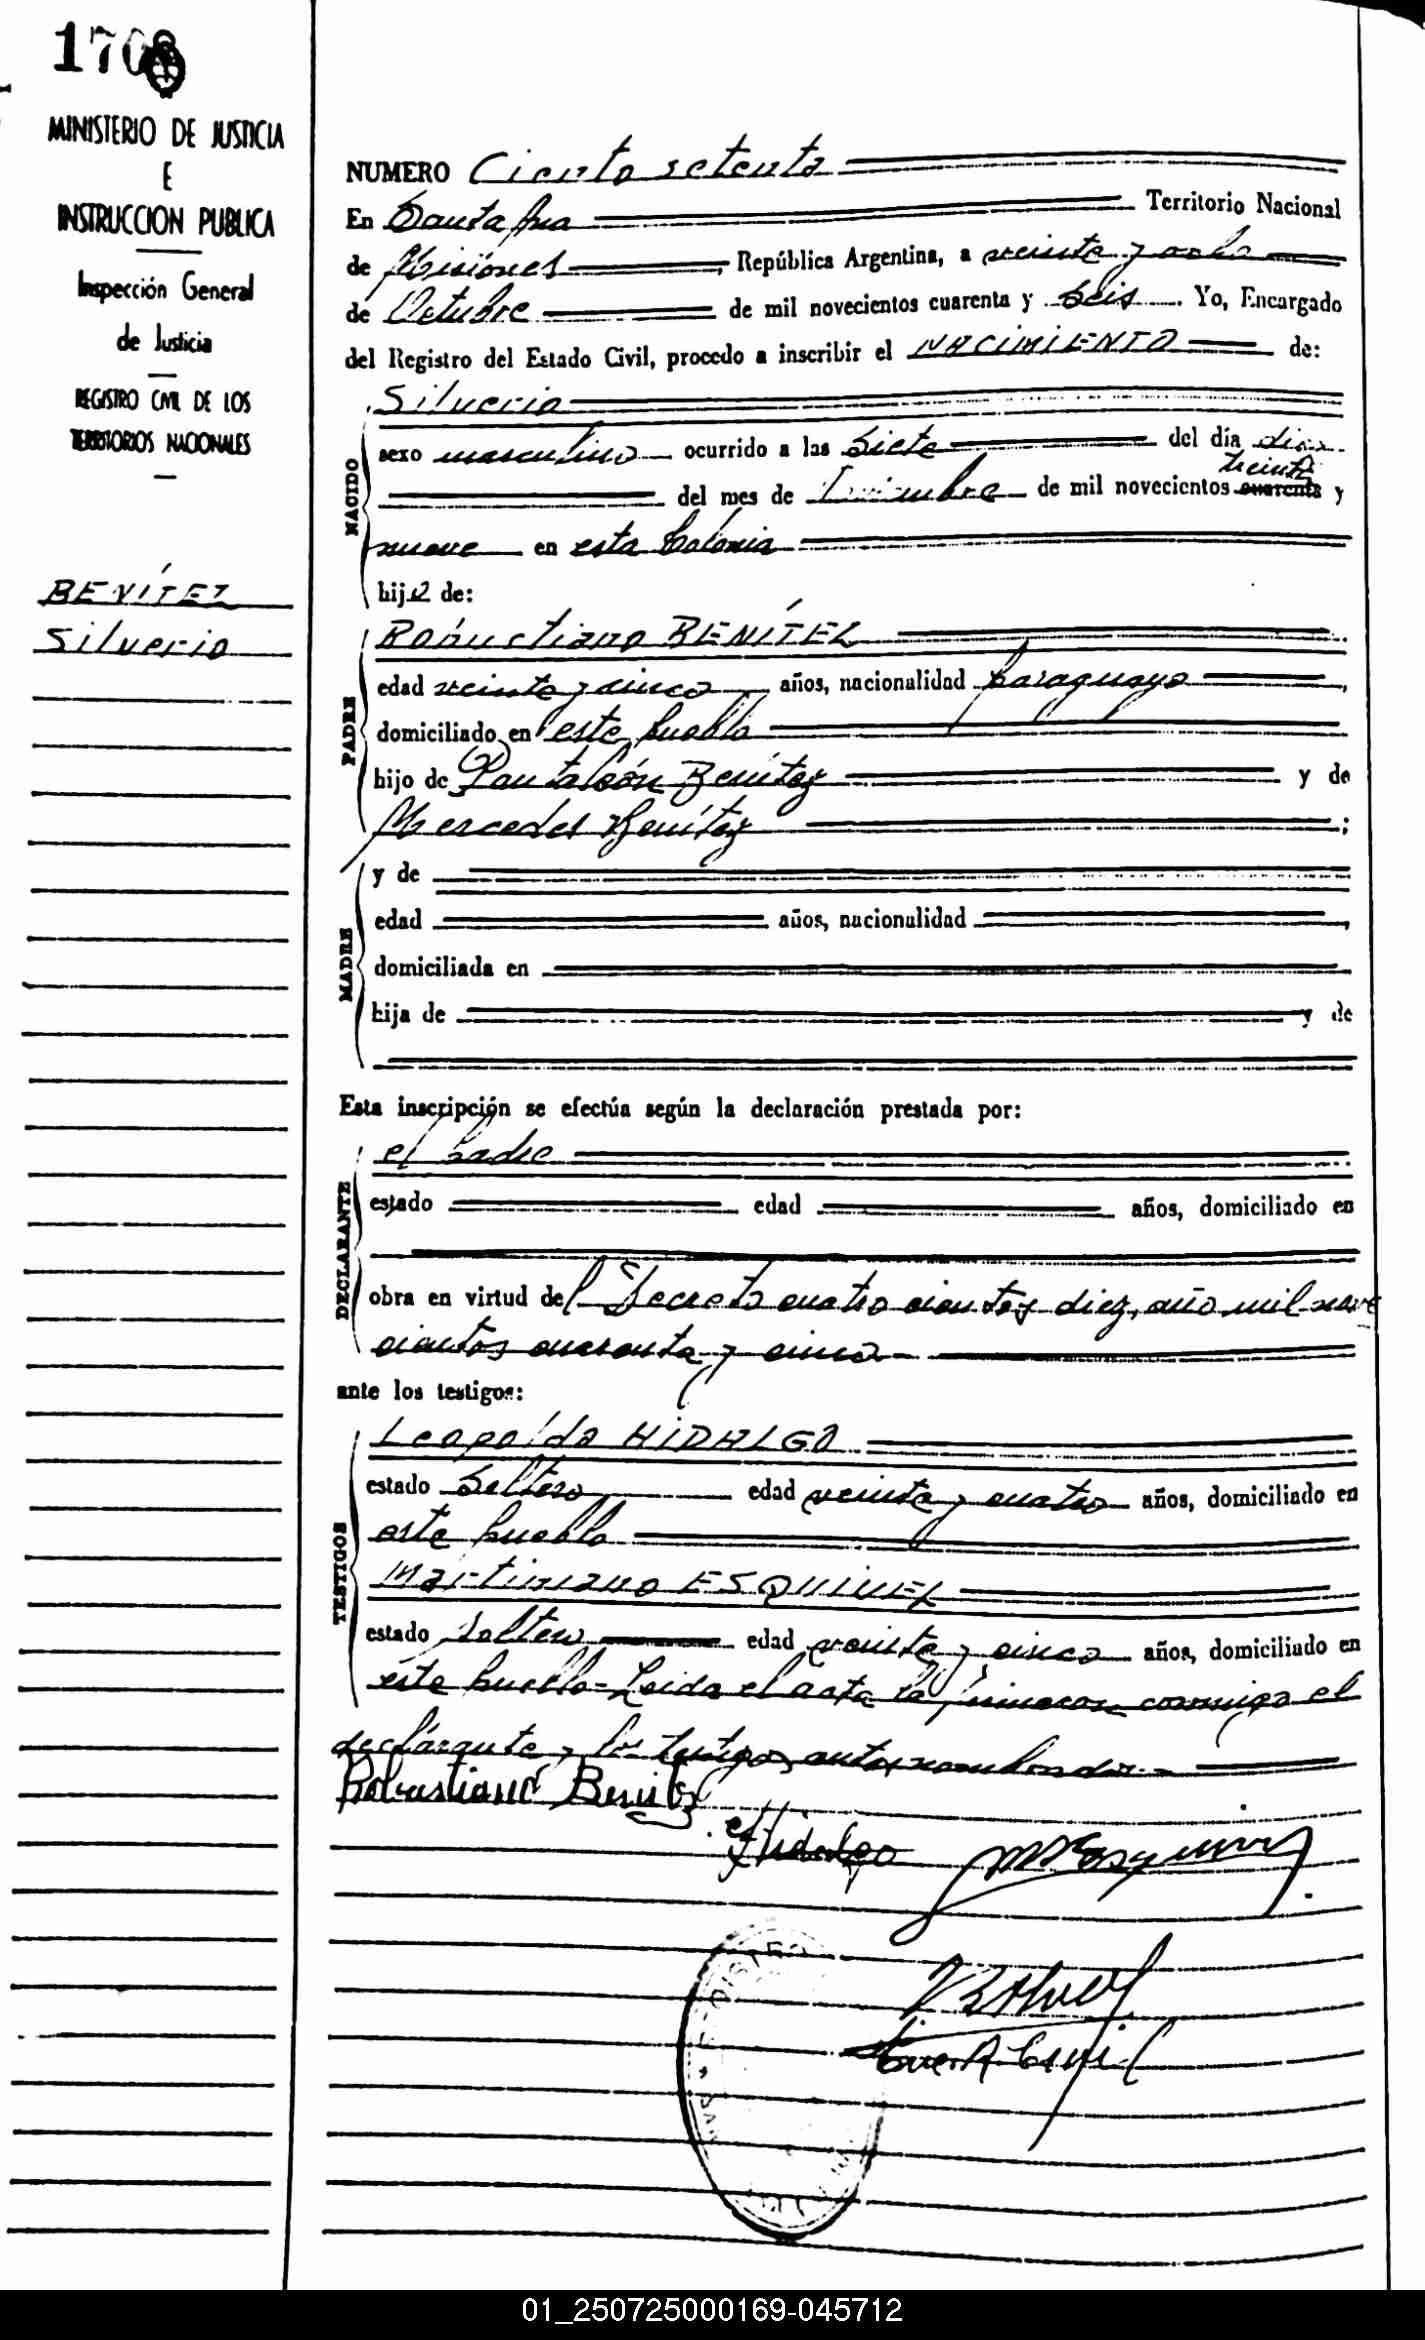 170
MINISTERIO DE JUSTICIA
E
INSTRUCCION PUBLICA
Inspección General
de Justicia
REGISTRO CIVIL DE LOS
TERRITORIOS NACIONALES
BENÍTEZ
Silverio
NUMERO Ciento setenta
En Santa Ana Territorio Nacional
de Misiones, República Argentina, a veinte y ocho
de Octubre de mil novecientos cuarenta y seis. Yo, Encargado
del Registro del Estado Civil, procedo a inscribir el NACIMIENTO de:
NACIDO
Silverio
sexo masculino ocurrido a las siete del día
treinta
del mes de de mil novecientos cuarenta y
nueve en esta Colonia
hijo de:
PADRE
Robustiano BENÍTEZ
edad veinte y cinco años, nacionalidad paraguayo,
domiciliado en este pueblo
hijo de Pantaleón Benítez y de
Mercedes Benítez;
MADRE
y de
edad años, nacionalidad,
domiciliada en
hija de y de
Esta inscripción se efectúa según la declaración prestada por:
DECLARANTE
el padre
estado edad años, domiciliado en
obra en virtud del Decreto cuatro cientos diez, año mil nove
cientos cuarenta y cinco
ante los testigos:
TESTIGOS
Leopoldo HIDALGO
estado soltero edad veinte y cuatro años, domiciliado en
este pueblo
Martiniano ESQUIVEL
estado soltero edad veinte y cinco años, domiciliado en
este pueblo = Leida el acta la firmaron conmigo el
declarante y los testigos antes nombrados.
Robustiano Benitez
Hidalgo
REGISTRO
01_250725000169-045712